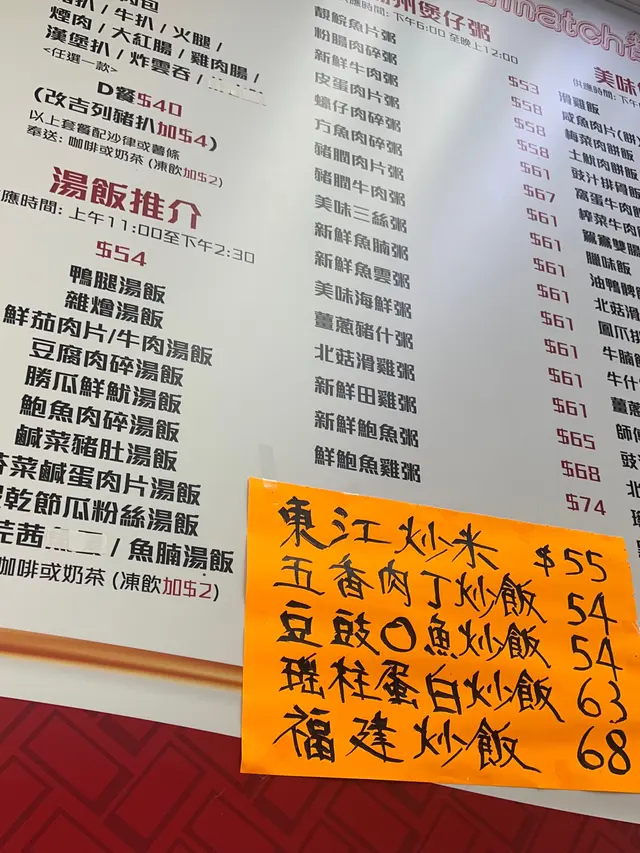 豬扒 / 牛扒 / 火腿 /
煙肉 / 大紅腸 / 雞肉腸 /
漢堡扒 / 炸雲吞 /
<任選一款>
D餐$40
(改吉列豬扒加$4)
以上套餐配沙律或薯條
奉送: 咖啡或奶茶 (凍飲加$2)
湯飯推介
應時間: 上午11:00至下午2:30
$54
鴨腿湯飯
雜燴湯飯
鮮茄肉片/牛肉湯飯
豆腐肉碎湯飯
勝瓜鮮魷湯飯
鮑魚肉碎湯飯
鹹菜豬肚湯飯
菜鹹蛋肉片湯飯
乾節瓜粉絲湯飯
芫茜 / 魚腩湯飯
咖啡或奶茶 (凍飲加$2)
州煲仔粥
應時間: 下午6:00至晚上12:00
靚鯇魚片粥 $53
粉腸肉碎粥 $58
新鮮牛肉粥 $58
皮蛋肉片粥 $58
蠔仔肉碎粥 $61
方魚肉碎粥 $67
豬膶肉片粥 $61
豬膶牛肉粥 $61
美味三絲粥 $61
新鮮魚腩粥 $61
新鮮魚雲粥 $61
美味海鮮粥 $61
薑蔥豬什粥 $61
北菇滑雞粥 $61
新鮮田雞粥 $65
新鮮鮑魚粥 $68
鮮鮑魚雞粥 $74
美味
供應時間: 下午
滑雞飯
咸魚肉片(餅)
梅菜肉餅飯
土魷肉餅飯
豉汁排骨飯
窩蛋牛肉飯
榨菜牛肉
鴛鴦雙腸
臘味飯
油鴨脾飯
北菇滑
鳳爪排
牛腩飯
牛什
薑蔥
師傅
豉
北
東江炒米 $55
五香肉丁炒飯 54
豆豉〇魚炒飯 54
瑤柱蛋白炒飯 63
福建炒飯 68